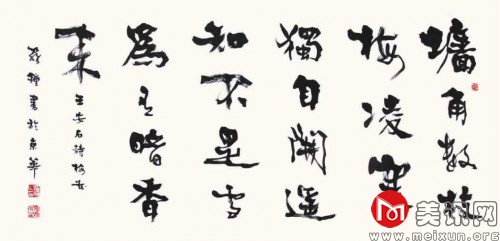 墻角數枝
梅凌寒
獨自開遥
知不是雪
爲有暗香
来
王安石詩梅花
書於京華
美讯网
www.meixun.org